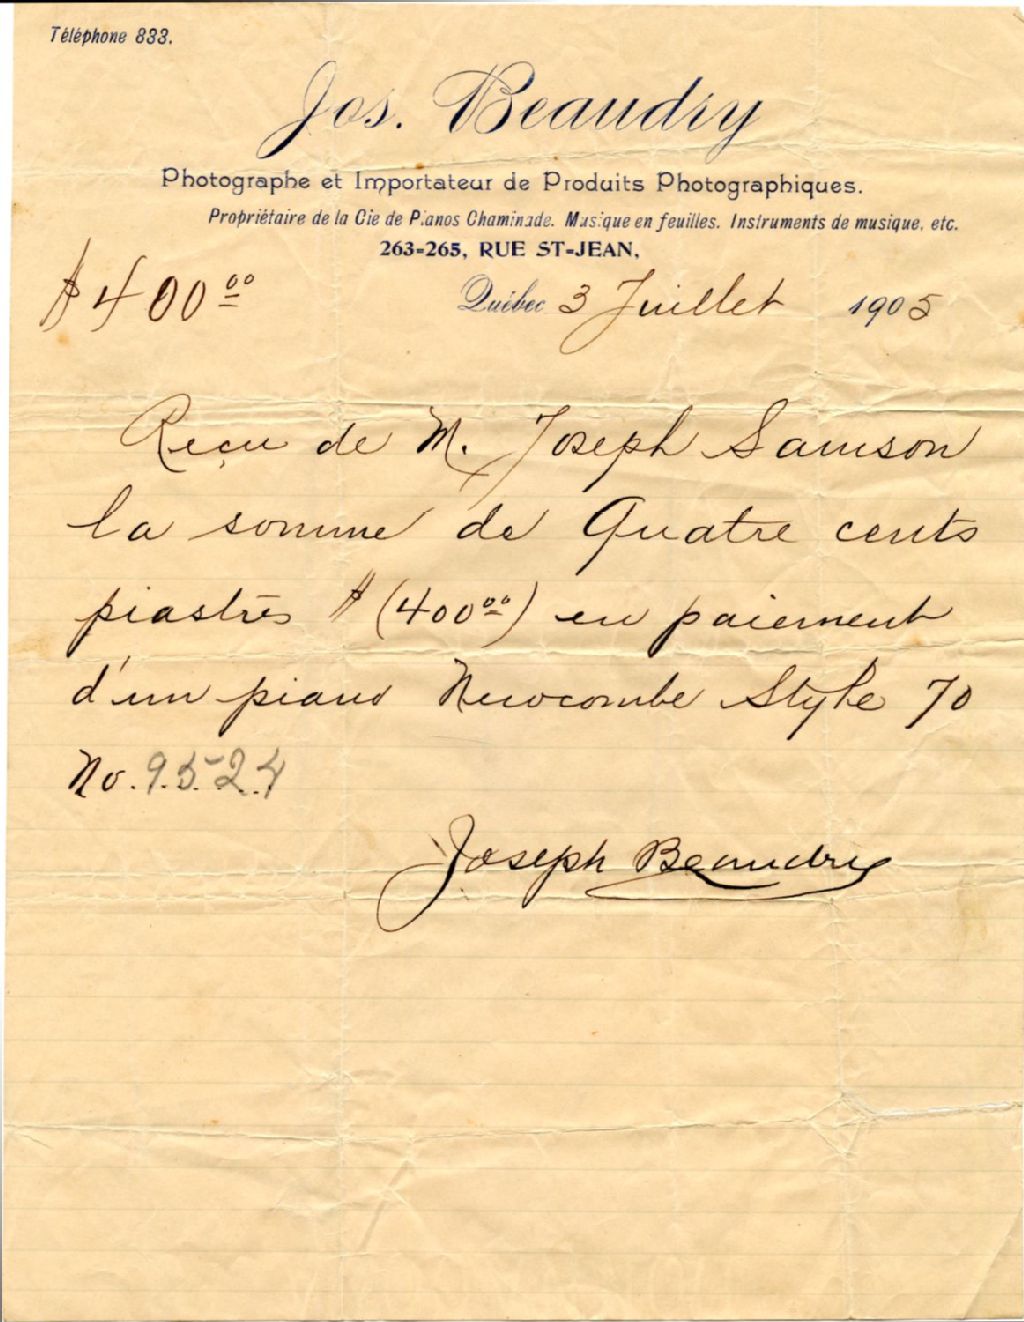 Téléphone 833.
Jos. Beaudry
Photographe et Importateur de Produits Photographiques.
Propriétaire de la Cie de Pianos Chaminade. Musique en feuilles. Instruments de musique, etc.
263-265, RUE ST-JEAN,
$400.00
Québec 3 Juillet 1905
Reçu de M. Joseph Samson
la somme de Quatre cents
piastres $ (400.00) en paiement
d'un piano Newcombe Style 70
No. 9524
Joseph Beaudry